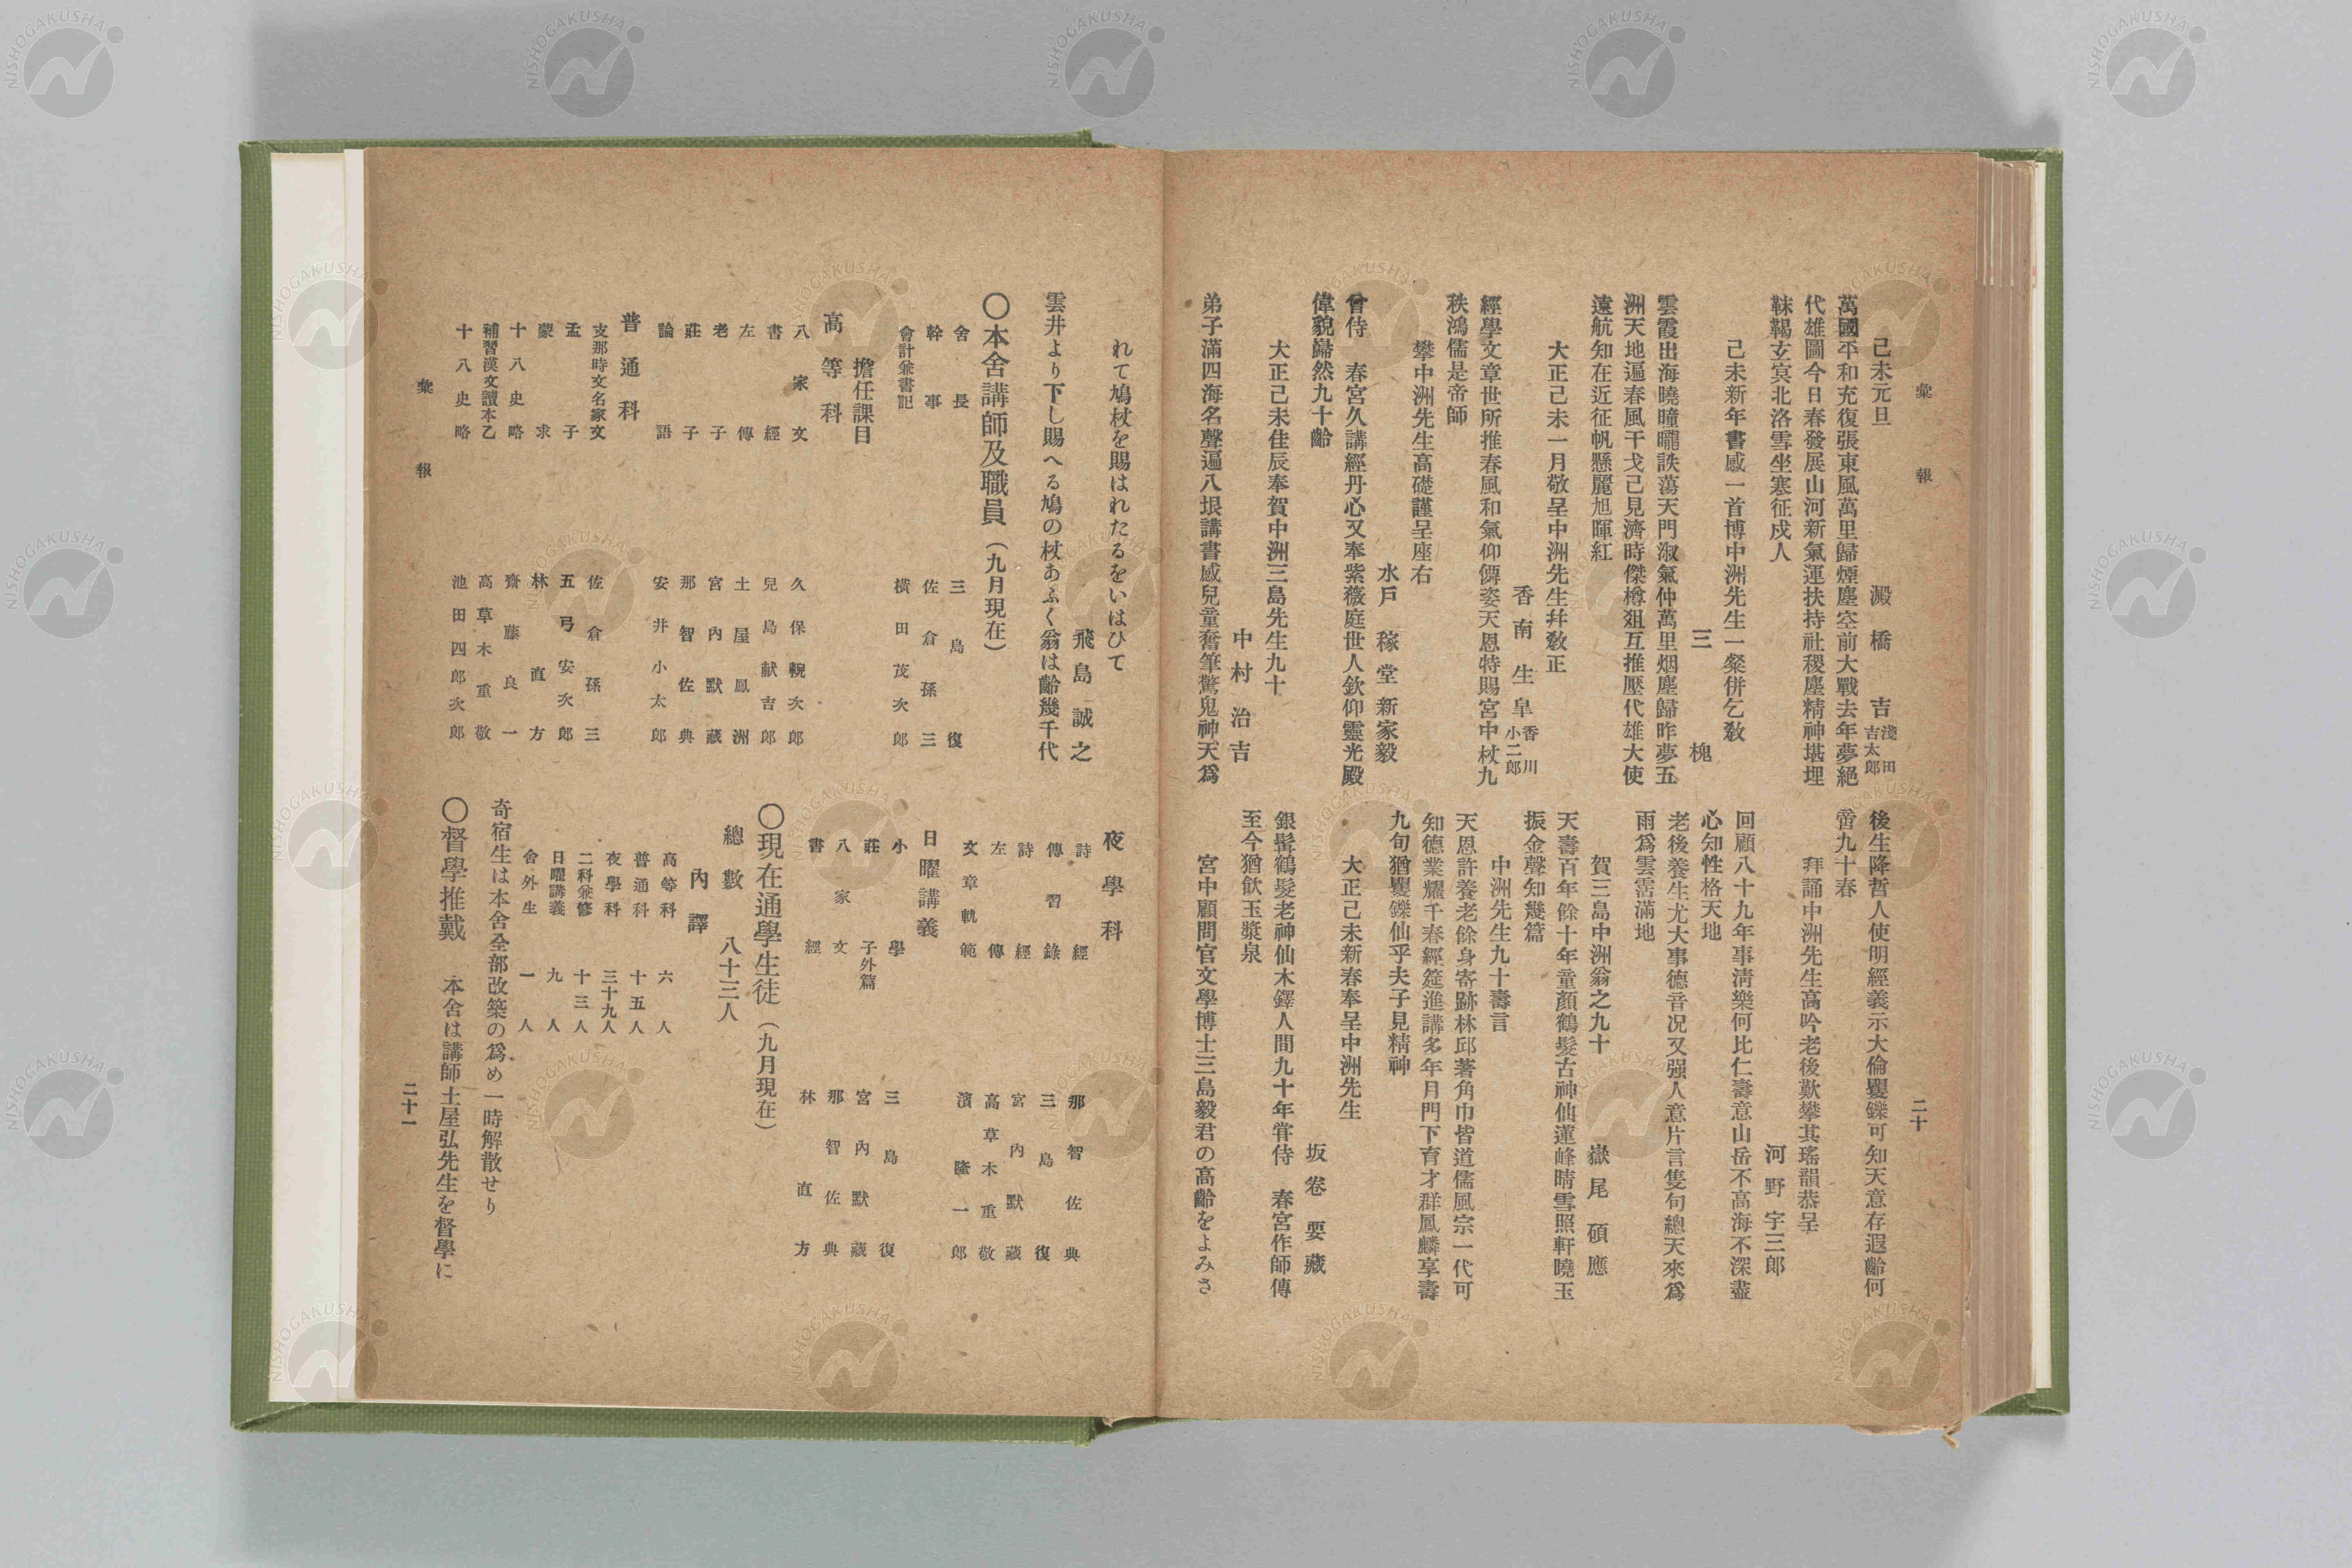 彙報
二十
己未元旦
澱橋吉 淺田吉太郎
萬國平和充復張東風萬里歸煙塵空前大戰去年夢絕
代雄圖今日春發展山河新氣運扶持社稷塵精神堪埋
靺鞨玄冥北洛雪坐塞征戍人
己未新年書感一首博中洲先生一粲併乞敎
三槐
雲霞出海曉曈曨詄蕩天門淑氣仲萬里烟塵歸昨夢五
洲天地遍春風干戈已見濟時傑樽俎互推壓代雄大使
遠航知在近征帆懸麗旭暉紅
大正己未一月敬呈中洲先生幷敎正
香南生皐 香川小二郎
經學文章世所推春風和氣仰儒姿天恩特賜宮中杖九
秩鴻儒是帝師
攀中洲先生高礎謹呈座右
水戶 稼堂 新家毅
曾侍 春宮久講經丹心又奉紫薇庭世人欽仰靈光殿
偉貌巋然九十齡
大正己未佳辰奉賀中洲三島先生九十
中村治吉
弟子滿四海名聲遍八垠講書感兒童奮筆驚鬼神天爲
後生降哲人使明經義示大倫矍鑠可知天意存遐齡何
啻九十春
拜誦中洲先生高吟老後歎攀其瑤韻恭呈
河野宇三郎
回顧八十九年事淸樂何比仁壽意山岳不高海不深盡
心知性格天地
老後養生尤大事德音况又强人意片言隻句總天來爲
雨爲雲霑滿地
賀三島中洲翁之九十
嶽尾碩應
天壽百年餘十年童顏鶴髮古神仙蓮峰晴雪照軒曉玉
振金聲知幾篇
中洲先生九十壽言
天恩許養老餘身寄跡林邱著角巾皆道儒風宗一代可
知德業耀千春經筵進講多年月門下育才群鳳麟享壽
九旬猶矍鑠仙乎夫子見精神
大正己未新春奉呈中洲先生
坂卷要藏
銀髯鶴髮老神仙木鐸人間九十年甞侍 春宮作師傳
至今猶飮玉漿泉
宮中顧問官文學博士三島毅君の高齡をよみさ
れて鳩杖を賜はれたるをいはひて
飛島誠之
雲井より下し賜へる鳩の杖あふく翁は齡幾千代
〇本舍講師及職員(九月現在)
舍長 三島復
幹事 佐倉孫三
會計兼書記 橫田茂次郎
擔任課目
高等科
八家文 久保輗次郎
書經 兒島献吉郎
左傳 土屋鳳洲
老子 宮內默藏
莊子 那智佐典
論語 安井小太郎
普通科
支那時文名家文 佐倉孫三
孟子 五弓安次郎
蒙求 林直方
十八史略 齋藤良一
補習漢文讀本乙 高草木重敬
十八史略 池田四郎次郎
夜學科
詩經 那智佐典
傳習錄 三島復
詩經 宮內默藏
左傳 高草木重敬
文章軌範 濱隆一郎
日曜講義
小學 三島復
莊子外篇 宮內默藏
八家文 那智佐典
書經 林直方
〇現在通學生徒(九月現在)
總數 八十三人
內譯
高等科 六人
普通科 十五人
夜學科 三十九人
二科兼修 十三人
日曜講義 九人
舍外生 一人
奇宿生は本舍全部改築の爲め一時解散せり
〇督學推戴 本舍は講師土屋弘先生を督學に
彙報
二十一